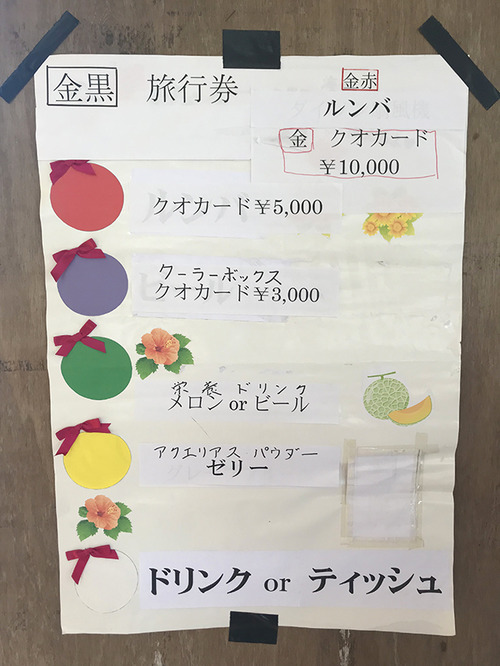 金黒 旅行券
金赤
ルンバ
金 クオカード
￥10,000
クオカード￥5,000
クーラーボックス
クオカード￥3,000
栄養ドリンク
メロン or ビール
アクエリアス パウダー
ゼリー
ドリンク or ティッシュ